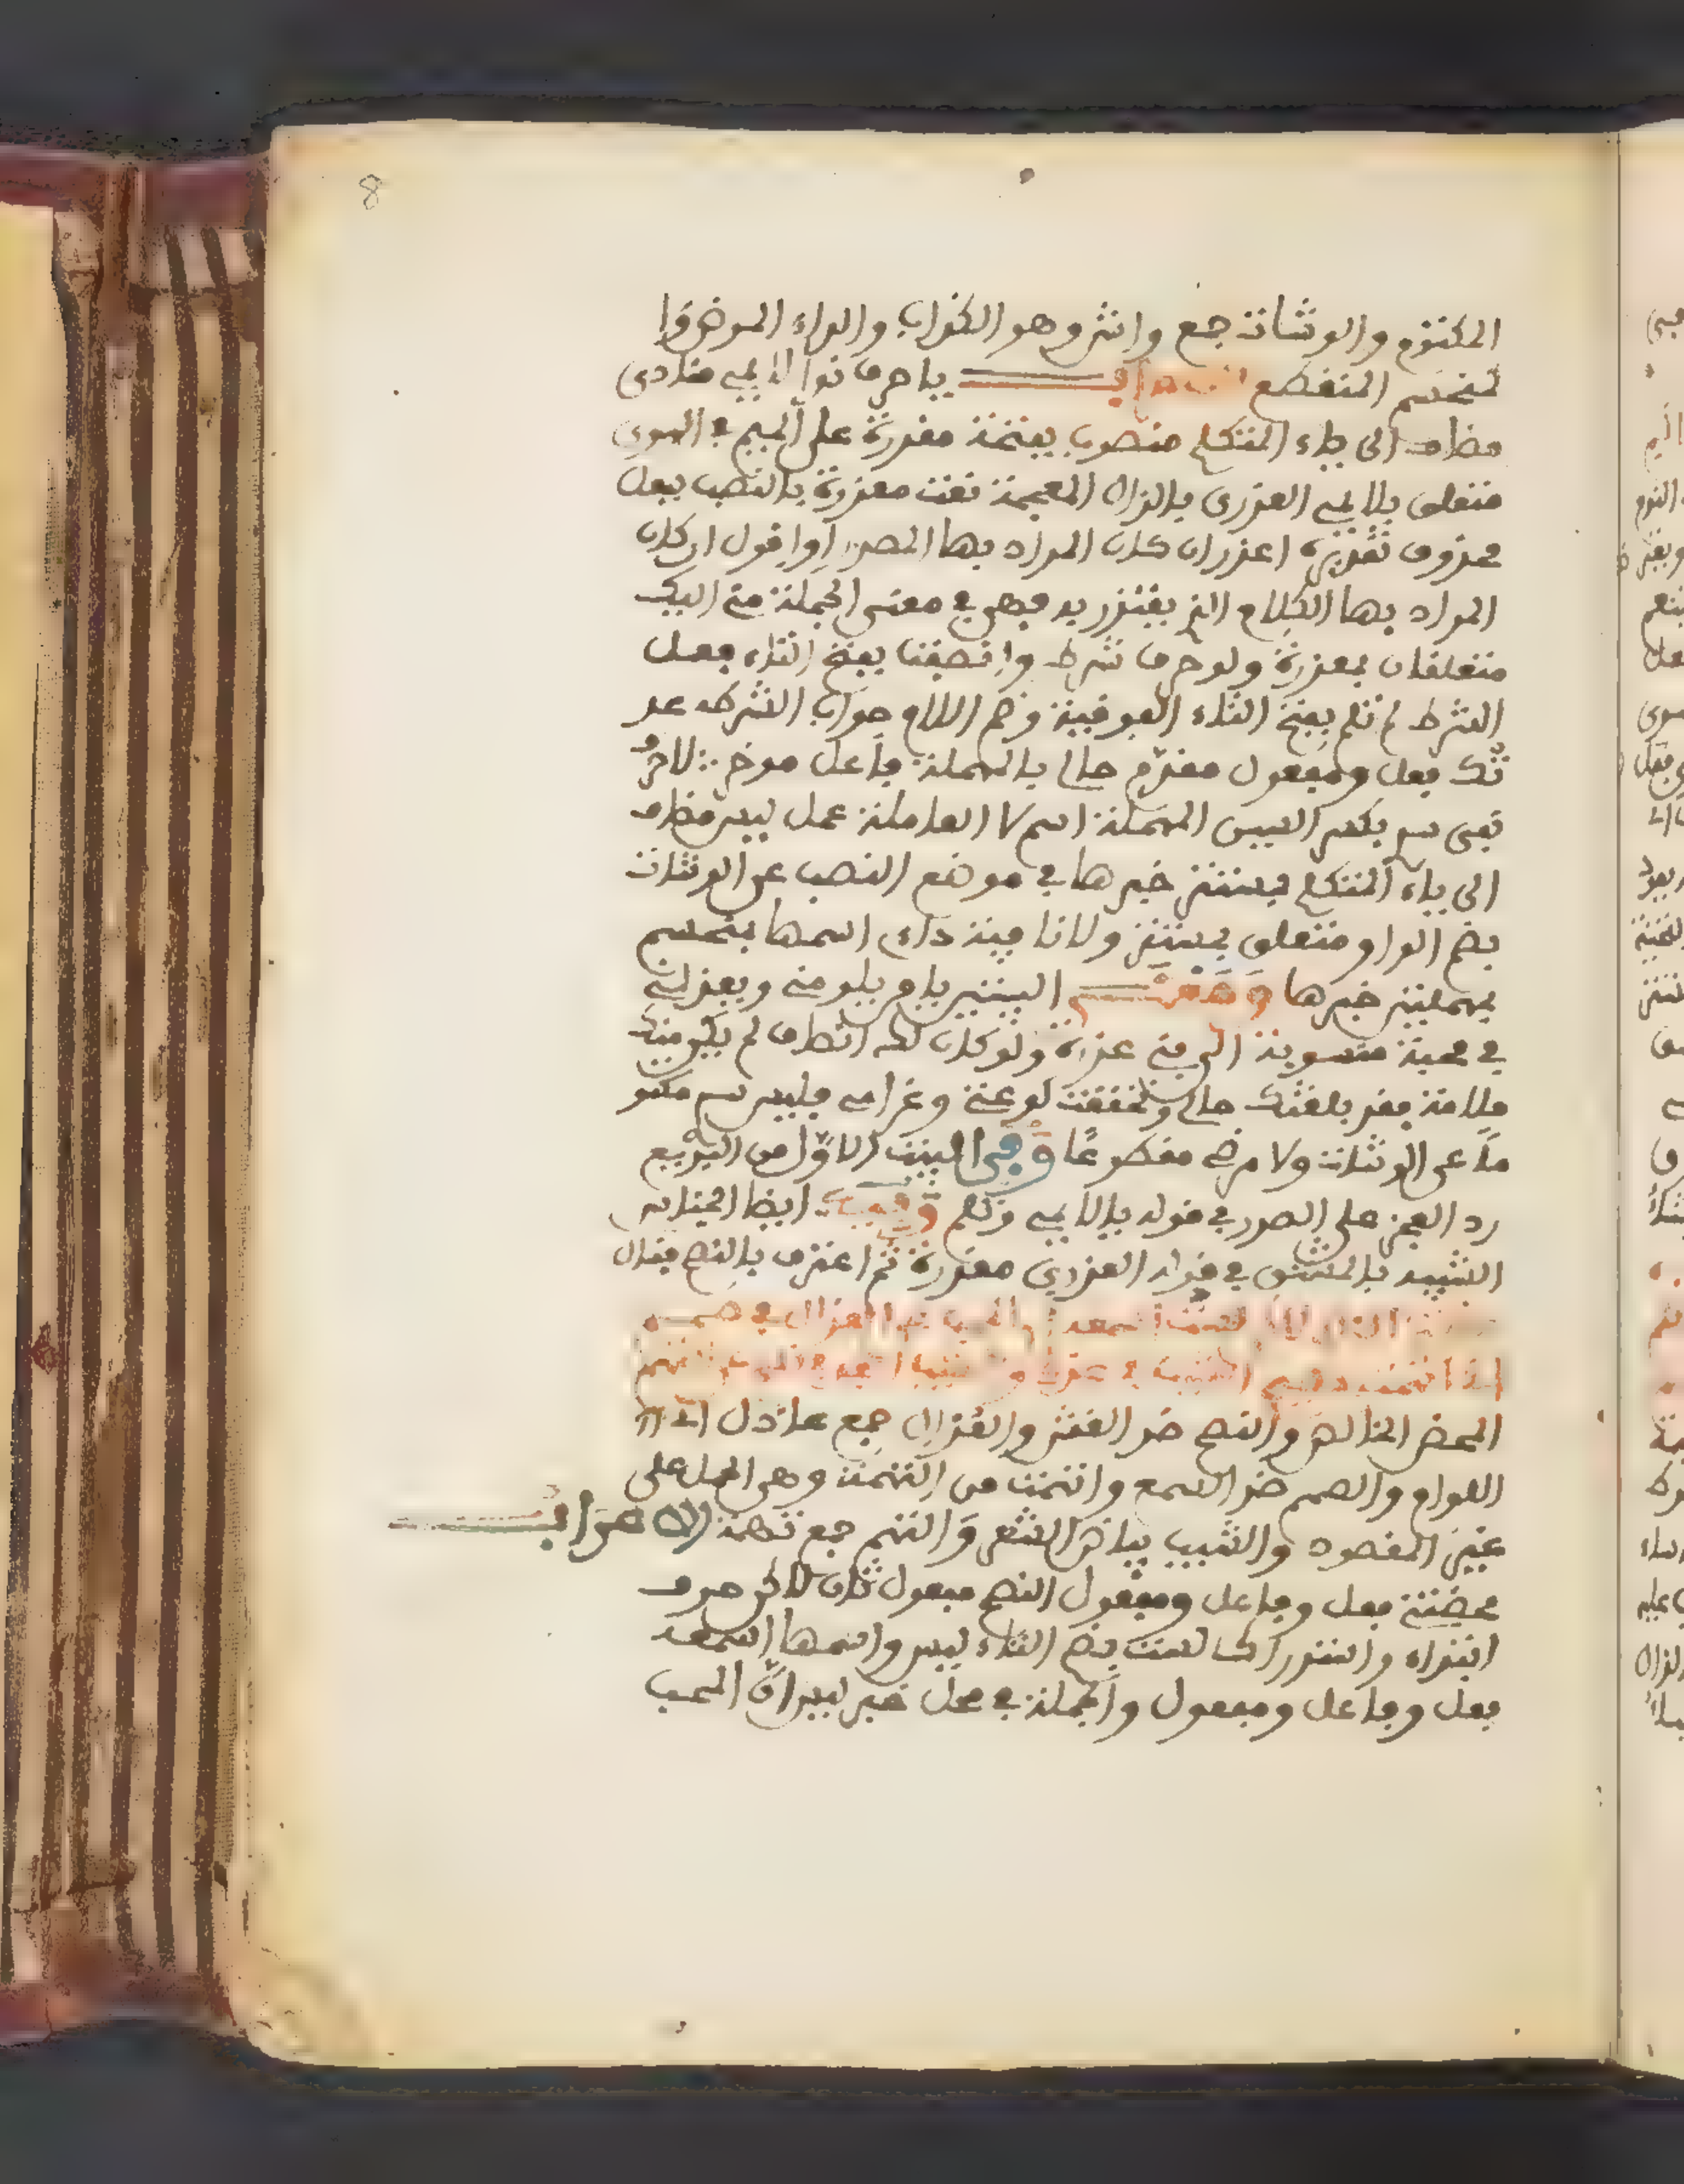 8
المكتوم والوشاة جمع واش وهو الكذاب والداء المرض وا
لمنحسم المنقطع الاعراب يا حرف نداء لايمي منادى
مضاف الى ياء المتكلم منصوب بفتحة مقدرة على الميم في الهوى
متعلق بلايمي العذري بالذال المعجمة نعت معذرة بالنصب بفعل
محذوف تقديره اعذر ان كان المراد بها المصدر او اقول ان كان
المراد بها الكلام الذي يعتذر به فهي في معنى الجملة مني اليك
متعلقان بمعذرة ولو حرف شرط وانصفت بفتح التاء فعل
الشرط لم تلم بفتح التاء الفوقية وضم اللام جواب الشرط عد
تك فعل ومفعول مقدم حالي بالمهملة فاعل موخر لا حرف
نفي سري بكسر السين المهملة اسم لا العاملة عمل ليس مضاف
الى ياء المتكلم بمستتر خبرها في موضع النصب عن الوشاة
بضم الواو متعلق بمستتر ولا نافية داءي اسمها بمنحسم
بمهملتين خبرها ومعنى البيتين يا من يلومني ويعذلني
في محبة منسوبة الى بني عذرة ولو كان لك انصاف لم يكن منك
ملامة فقد بلغتك حالي وتحققت لوعتي وغرامي فليس سري مكتو
ما عن الوشاة ولا مرضي مقطوعا وفي البيت الاول من البديع
رد العجز على الصدر في قوله يا لايمي وتلم وفيه ايضا الجناس
الشبيه بالمشتق في قوله العذري معذرة ثم اعترف بالنصح فقال
محضتني النصح لكن لست اسمعه ان المحب عن العذال في صمم
اني اتهمت نصيح الشيب في عذلي والشيب ابعد في نصح عن التهم
المحض الخالص والنصح ضد الغش والعذال جمع عاذل اي
اللوام والصمم ضد السمع واتهمت من التهمة وهي الحمل على
غير المقصود والشيب بياض الشعر والتهم جمع تهمة الاعراب
محضتني فعل وفاعل ومفعول النصح مفعول ثان لاكن حرف
ابتداء واستدراك لست بضم التاء ليس واسمها اسمعه
فعل وفاعل ومفعول والجملة في محل خبر ليس ان المحب